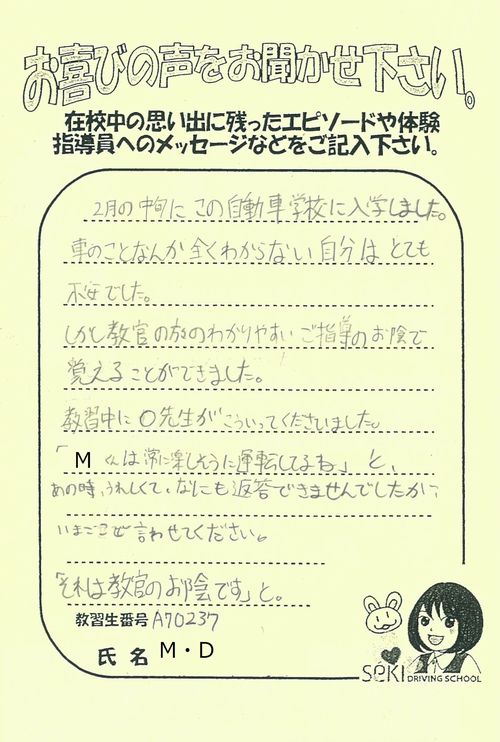 お喜びの声をお聞かせ下さい。
在校中の思い出に残ったエピソードや体験
指導員へのメッセージなどをご記入下さい。
2月の中旬にこの自動車学校に入学しました。
車のことなんか全くわからない自分はとても
不安でした。
しかし教官の方のわかりやすいご指導のお陰で
覚えることができました。
教習中にO先生がこういってくださいました。
「Mくんは常に楽しそうに運転してるね。」と、
あの時、うれしくて、なにも返答できませんでしたが、
いまここで言わせてください。
「それは教官のお陰です」と。
教習生番号 A70237
氏名 M・D
SEKI DRIVING SCHOOL